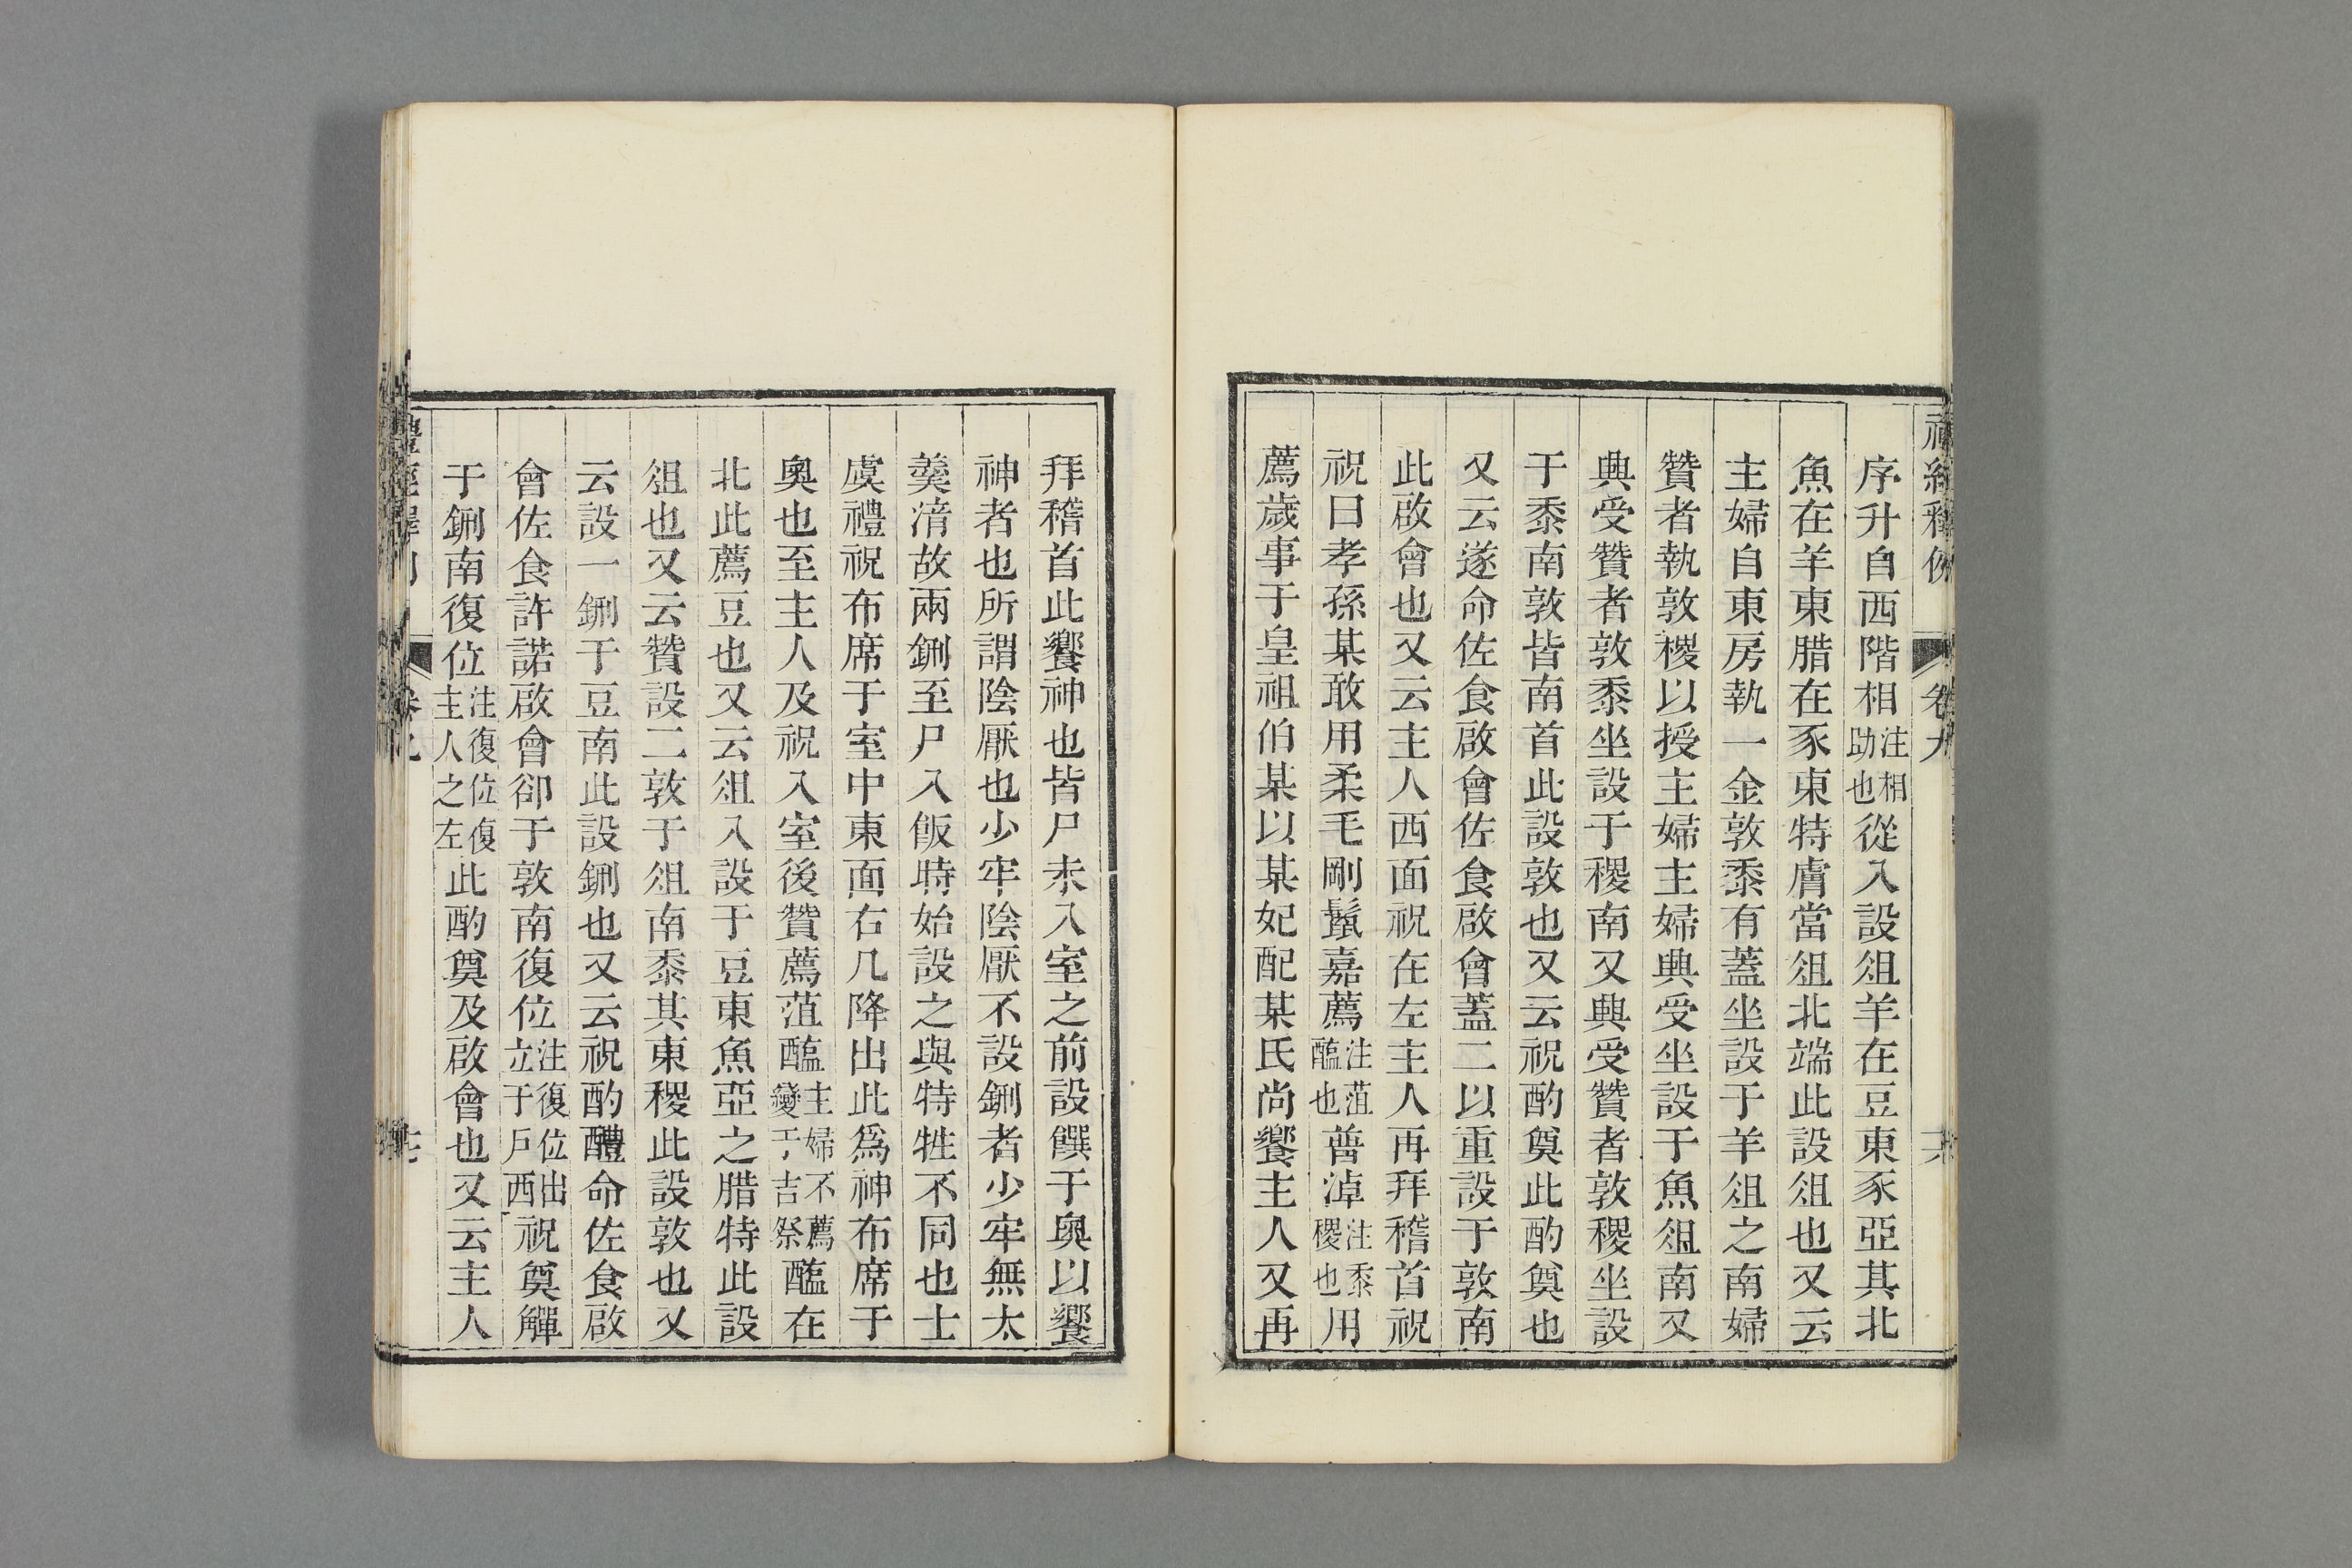 序升自西階相注相助也從入設俎羊在豆東豕亞其北
魚在羊東腊在豕東特膚當俎北端此設俎也又云
主婦自東房執一金敦黍有蓋坐設于羊俎之南婦
贊者執敦稷以授主婦主婦興受坐設于魚俎南又
興受贊者敦黍坐設于稷南又興受贊者敦稷坐設
于黍南敦皆南首此設敦也又云祝酌奠此酌奠也
又云遂命佐食啟會佐食啟會蓋二以重設于敦南
此啟會也又云主人西面祝在左主人再拜稽首祝
祝曰孝孫某敢用柔毛剛鬛嘉薦注菹醢也普淖注黍稷也用
薦歲事于皇祖伯某以某妃配某氏尚饗主人又再
拜稽首此饗神也皆尸未入室之前設饌于奧以饗
神者也所謂陰厭也少牢陰厭不設鉶者少牢無太
羹湆故兩鉶至尸入飯時始設之與特牲不同也士
虞禮祝布席于室中東面右几降出此為神布席于
奧也至主人及祝入室後贊薦菹醢主婦不薦變于吉祭醢在
北此薦豆也又云俎入設于豆東魚亞之腊特此設
俎也又云贊設二敦于俎南黍其東稷此設敦也又
云設一鉶于豆南此設鉶也又云祝酌醴命佐食啟
會佐食許諾啟會卻于敦南復位注復位出立于戶西祝奠觶
于鉶南復位注復位復主人之左此酌奠及啟會也又云主人